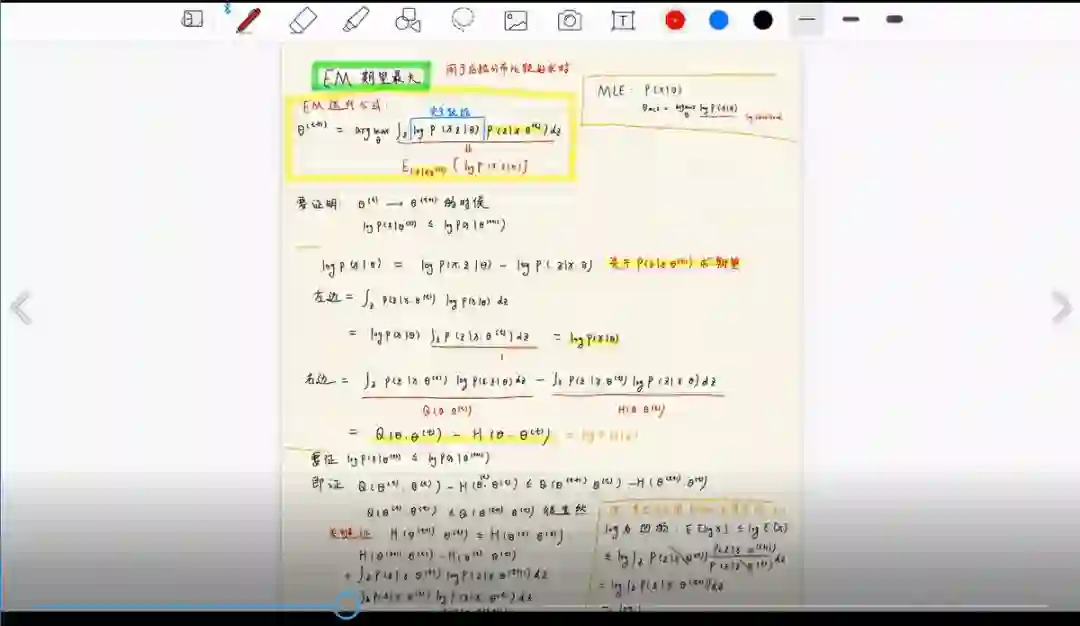 EM 期望最大
MLE: P(x|θ)
θMLE = argmax_θ log P(x|θ)
EM 迭代公式:
完全数据
θ^(t+1) = argmax_θ ∫_z log P(x z|θ) P(z|x θ^(t)) dz
E_z|x θ^(t) [log P(x z|θ)]
要证明: θ^(t) → θ^(t+1) 的时候
log P(x|θ^(t)) ≤ log P(x|θ^(t+1))
log P(x|θ) = log P(x z|θ) - log P(z|x θ) 关于 P(z|x θ^(t)) 求期望
左边 = ∫_z P(z|x θ^(t)) log P(x|θ) dz
= log P(x|θ) ∫_z P(z|x θ^(t)) dz = log P(x|θ)
1
右边 = ∫_z P(z|x θ^(t)) log P(x z|θ) dz - ∫_z P(z|x θ^(t)) log P(z|x θ) dz
Q(θ θ^(t)) H(θ θ^(t))
= Q(θ, θ^(t)) - H(θ, θ^(t))
要证 log P(x|θ^(t)) ≤ log P(x|θ^(t+1))
即证 Q(θ^(t), θ^(t)) - H(θ^(t), θ^(t)) ≤ Q(θ^(t+1) θ^(t)) - H(θ^(t+1) θ^(t))
Q(θ^(t) θ^(t)) ≤ Q(θ^(t+1) θ^(t))
H(θ^(t+1) θ^(t)) ≤ H(θ^(t) θ^(t))
H(θ^(t+1) θ^(t)) - H(θ^(t) θ^(t))
= ∫_z P(z|x θ^(t)) log P(z|x θ^(t+1)) dz
- ∫_z P(z|x θ^(t)) log P(z|x θ^(t)) dz
log E[x]
≤ log ∫_z P(z|x θ^(t)) P(z|x θ^(t+1)) / P(z|x θ^(t)) dz
= log ∫_z P(z|x θ^(t+1)) dz
= log 1